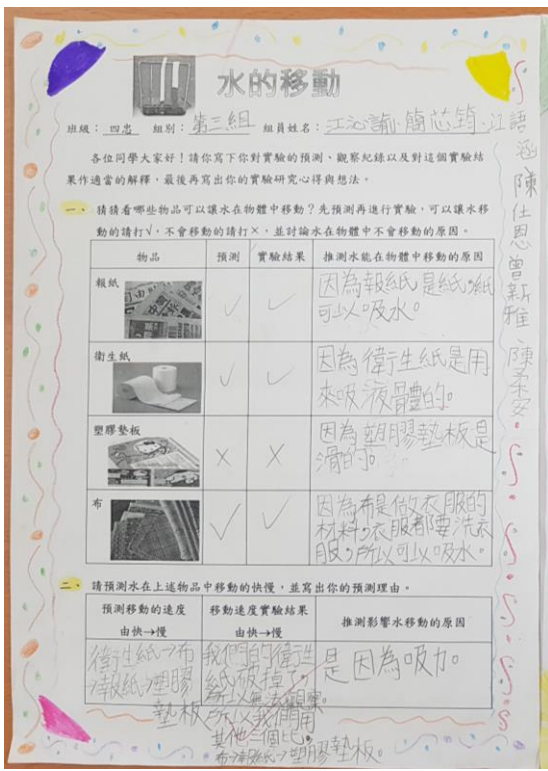 水的移動
班級：四忠 組別：第三組 組員姓名：江沁諭、簡芯筠、江語涵、陳仕恩、曾新雅、陳柔安
各位同學大家好！請你寫下你對實驗的預測、觀察紀錄以及對這個實驗結
果作適當的解釋，最後再寫出你的實驗研究心得與想法。
一、 猜猜看哪些物品可以讓水在物體中移動？先預測再進行實驗，可以讓水移
動的請打√，不會移動的請打×，並討論水在物體中不會移動的原因。
物品 預測 實驗結果 推測水能在物體中移動的原因
報紙 √ √ 因為報紙是紙，紙
可以吸水。
衛生紙 √ √ 因為衛生紙是用
來吸液體的。
塑膠墊板 × × 因為塑膠墊板是
滑的。
布 √ √ 因為布是做衣服的
材料，衣服都要洗衣
服，所以可以吸水。
二、 請預測水在上述物品中移動的快慢，並寫出你的預測理由。
預測移動的速度
由快→慢
移動速度實驗結果
由快→慢
推測影響水移動的原因
衛生紙→布
→報紙→塑膠
墊板
我們的衛生
紙破掉了。
所以無法觀察。
所以我們用
其他三個比。
布→報紙→塑膠墊板。
是因為吸力。